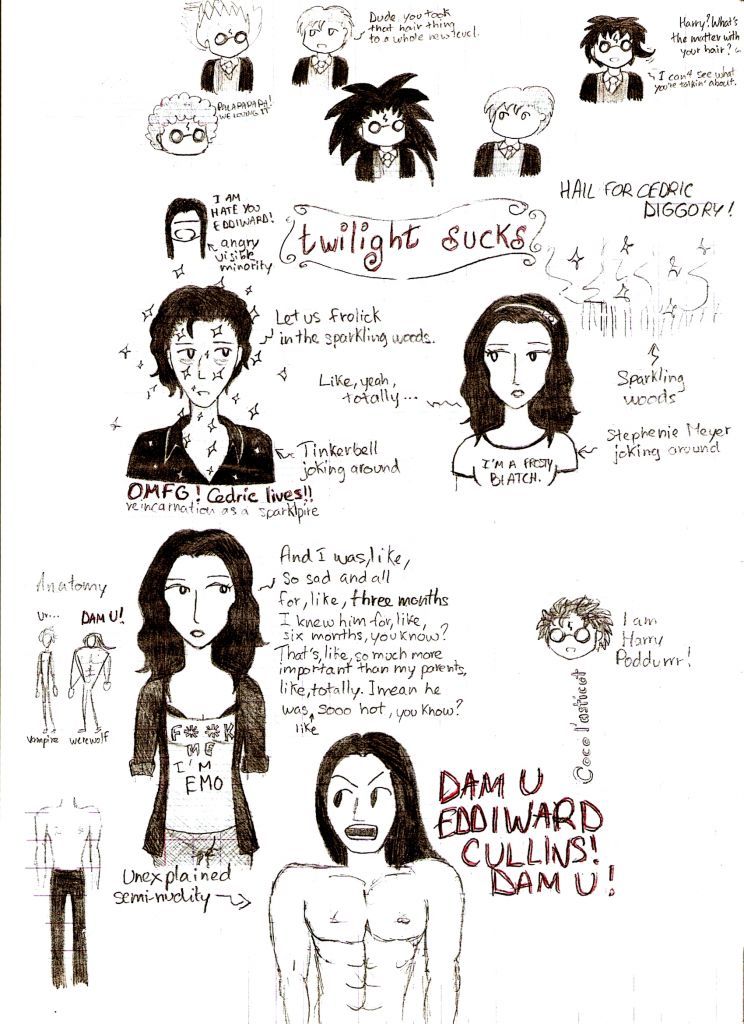 Dude, you took
that hair thing
to a whole new level.
Harry? What's
the matter with
your hair?
I can't see what
you're talkin' about.
PALAPAPAPA!
WE LOVING IT
I AM
HATE YOU
EDDIWARD!
angry
visible
minority
twilight sucks
HAIL FOR CEDRIC
DIGGORY!
Let us frolick
in the sparkling woods.
Like, yeah,
totally...
Sparkling
woods
Tinkerbell
joking around
Stephenie Meyer
joking around
I'M A FROSTY
BIATCH.
OMFG! Cedric lives!!
reincarnation as a sparklpire
Anatomy
Ur...
DAM U!
vampire
werewolf
And I was, like,
So sad and all
for, like, three months
I knew him for, like,
six months, you know?
That's, like, so much more
important than my parents,
like, totally. I mean he
was, sooo hot, you know?
like
F**K
ME
I'M
EMO
I am
Harry
Poddurrr!
Coco l'asticot
Unexplained
semi-nudity
DAM U
EDDIWARD
CULLINS!
DAM U!